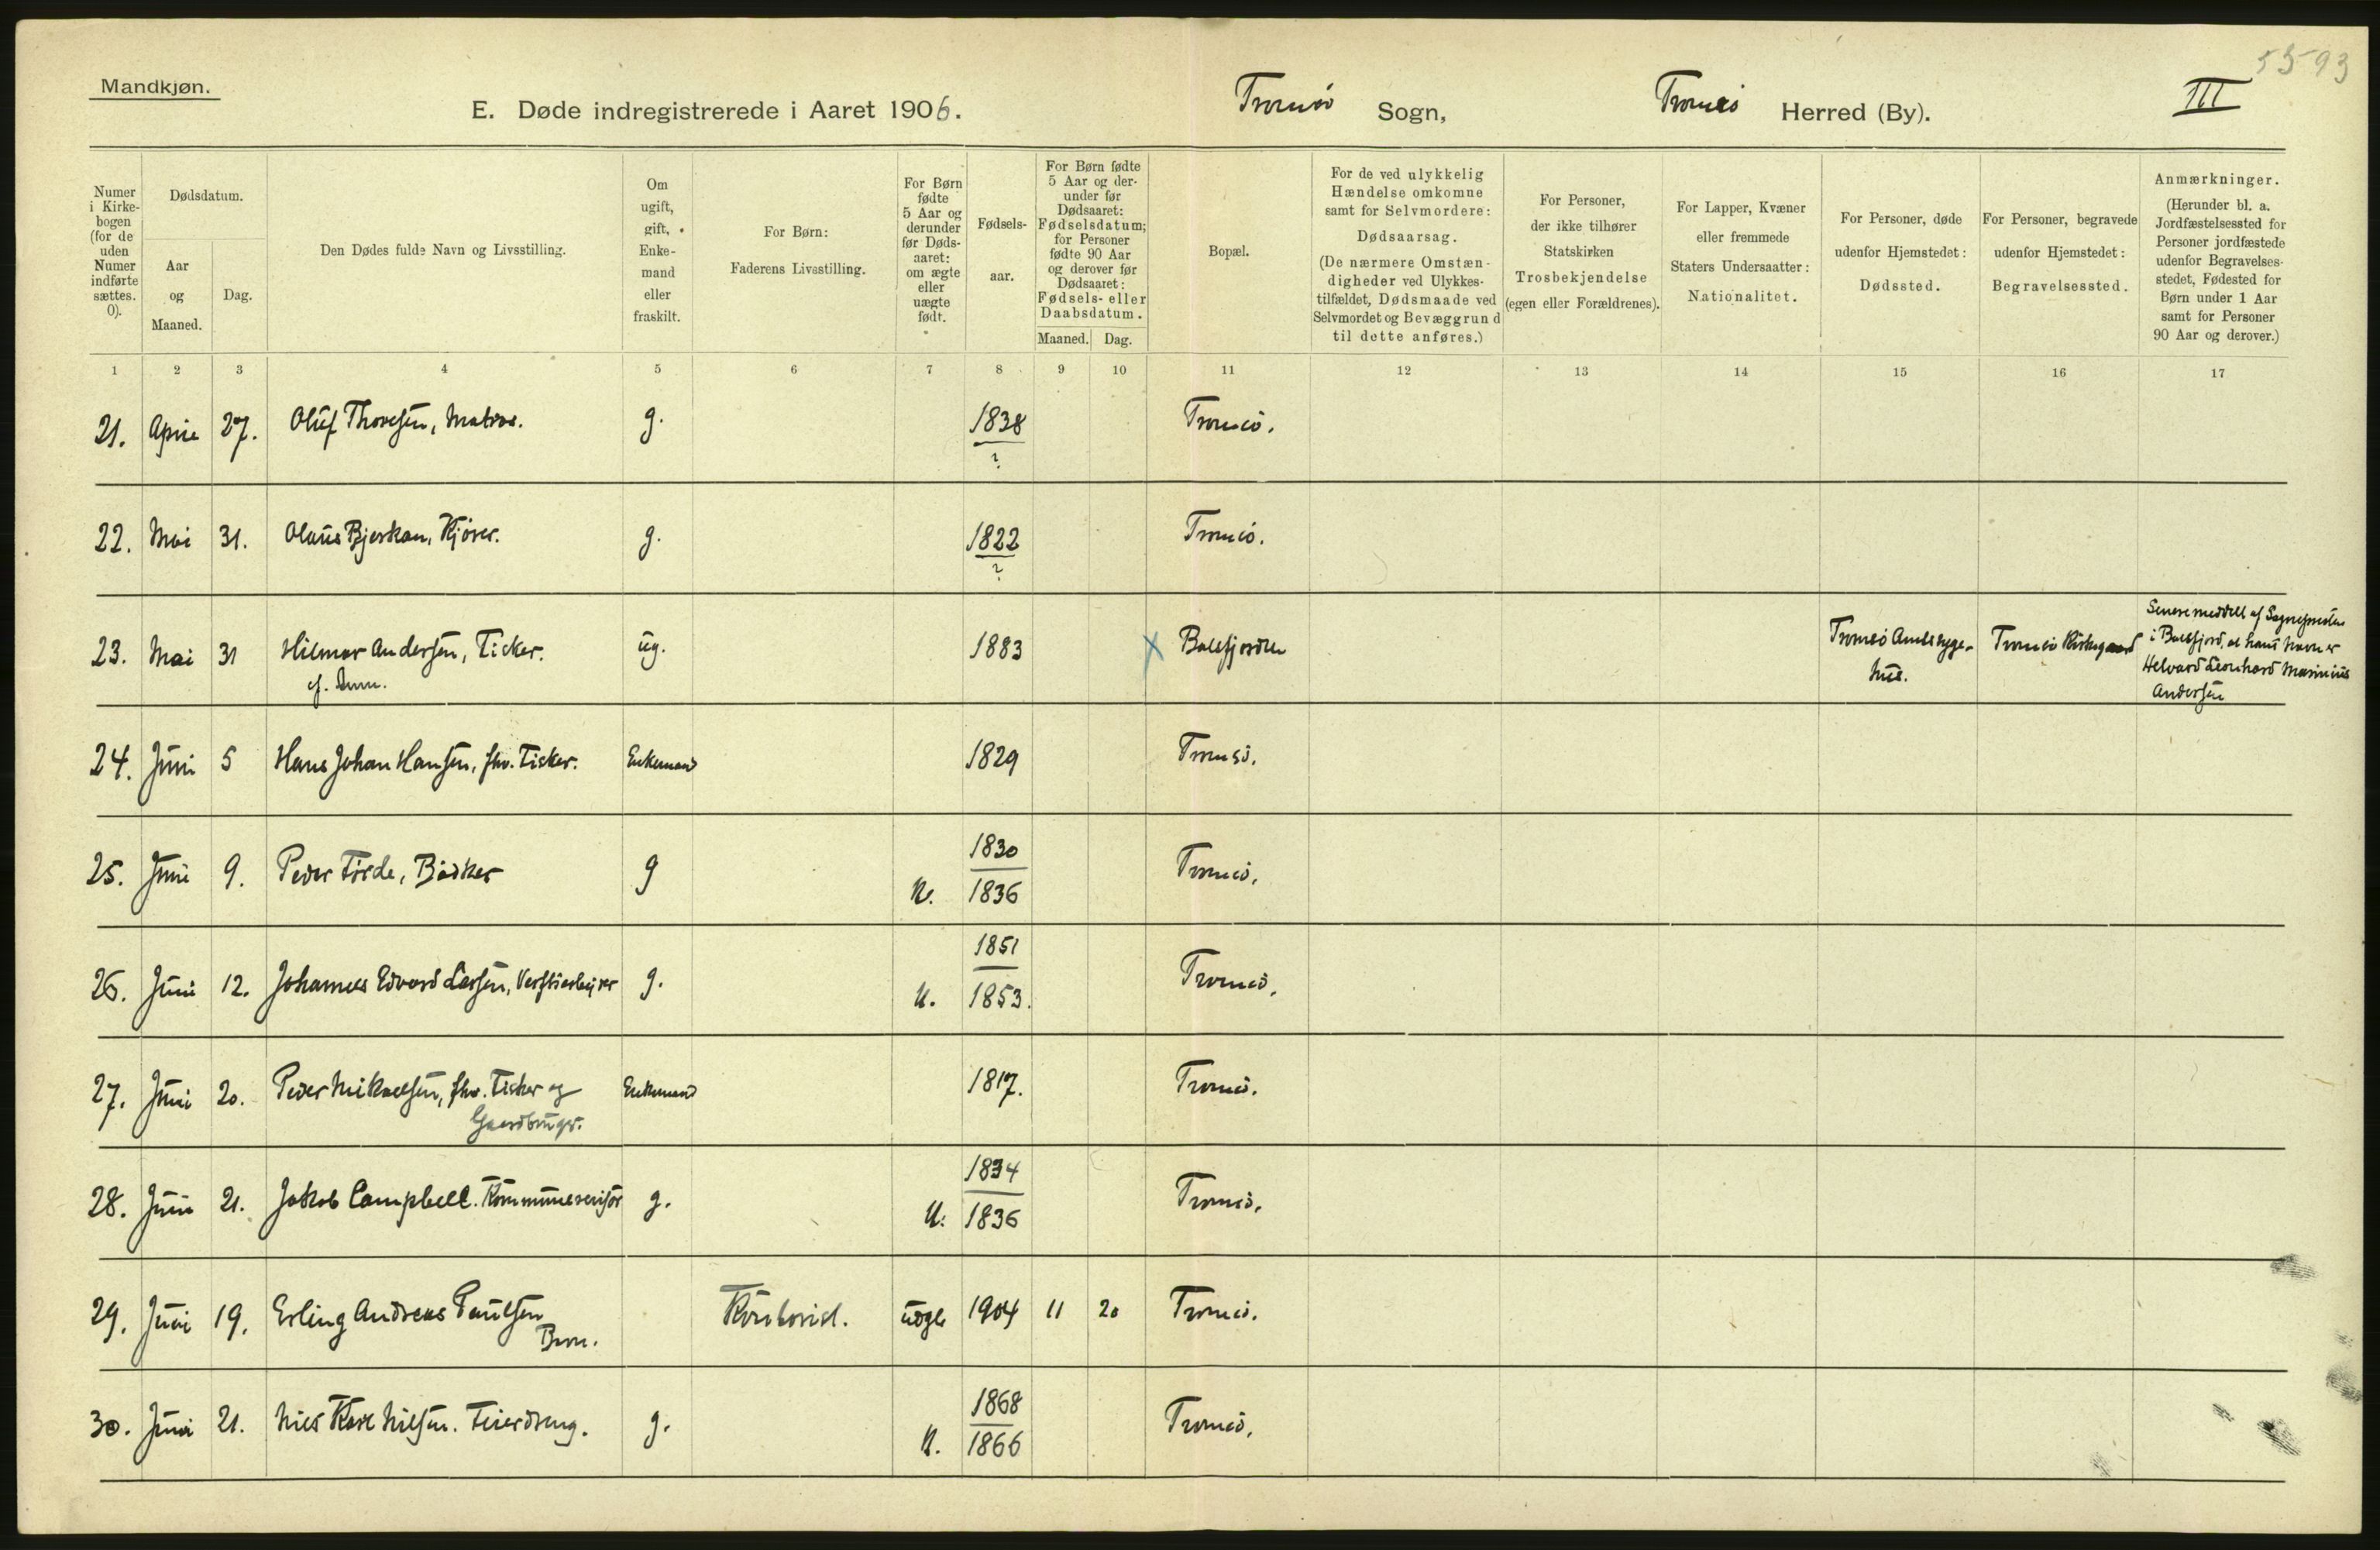 5593
Mandkjøn.
E. Døde indregistrerede i Aaret 1906.
Tromsö Sogn,
Tromsö Herred (By).
III
Numer i Kirkebogen (for de uden Numer indførte sættes. 0).
Dødsdatum.
Aar og Maaned.
Dag.
Den Dødes fulde Navn og Livsstilling.
Om ugift, gift, Enkemand eller fraskilt.
For Børn: Faderens Livsstilling.
For Børn fødte 5 Aar og derunder før Dødsaaret: om ægte eller uægte født.
Fødselsaar.
For Børn fødte 5 Aar og derunder før Dødsaaret: Fødselsdatum; for Personer fødte 90 Aar og derover før Dødsaaret: Fødsels- eller Daabsdatum.
Maaned. Dag.
Bopæl.
For de ved ulykkelig Hændelse omkomne samt for Selvmordere: Dødsaarsag. (De nærmere Omstændigheder ved Ulykkestilfældet, Dødsmaade ved Selvmordet og Bevæggrund til dette anføres.)
For Personer, der ikke tilhører Statskirken Trosbekjendelse (egen eller Forældrenes).
For Lapper, Kvæner eller fremmede Staters Undersaatter: Nationalitet.
For Personer, døde udenfor Hjemstedet: Dødssted.
For Personer, begravede udenfor Hjemstedet: Begravelsessted.
Anmærkninger. (Herunder bl. a. Jordfæstelsessted for Personer jordfæstede udenfor Begravelsesstedet, Fødested for Børn under 1 Aar samt for Personer 90 Aar og derover.)
1 2 3 4 5 6 7 8 9 10 11 12 13 14 15 16 17
21. April 27. Oluf Thoresen, Matros. g. 1838 ? Tromsö.
22. Mai 31. Olaus Bjerkan, Kjörer. g. 1822 ? Tromsö.
23. Mai 31 Hilmar Andersen, Fisker. ug. 1883 x Balsfjorden Tromsö Amtssygehus. Tromsö Kirkegaard
cf. Anm.
Senere meddelt af Sognepresten
i Balsfjord, at hans Navn er
Helvard Leonhard Marinius
Andersen
24. Juni 5 Hans Johan Hansen, fhv. Fisker. Enkemand 1829 Tromsö.
25. Juni 9. Peder Förde, Bödker g 1830 Tromsö.
U. 1836
26. Juni 12. Johannes Edvard Larsen, Verftsarbejder g. 1851 Tromsö.
U. 1853.
27. Juni 20. Peder Mikaelsen, fhv. Fisker og Enkemand 1817. Tromsö.
Gaardbruger.
28. Juni 21. Jakob Campbell. Kommunerevisor g. 1834 Tromsö.
U. 1836
29. Juni 19. Erling Andreas Paulsen uægte 1904 11 20 Tromsö.
Barn.
30. Juni 21. Nils Karl Nilsen. Feierdreng. g. 1868 Tromsö.
U. 1866